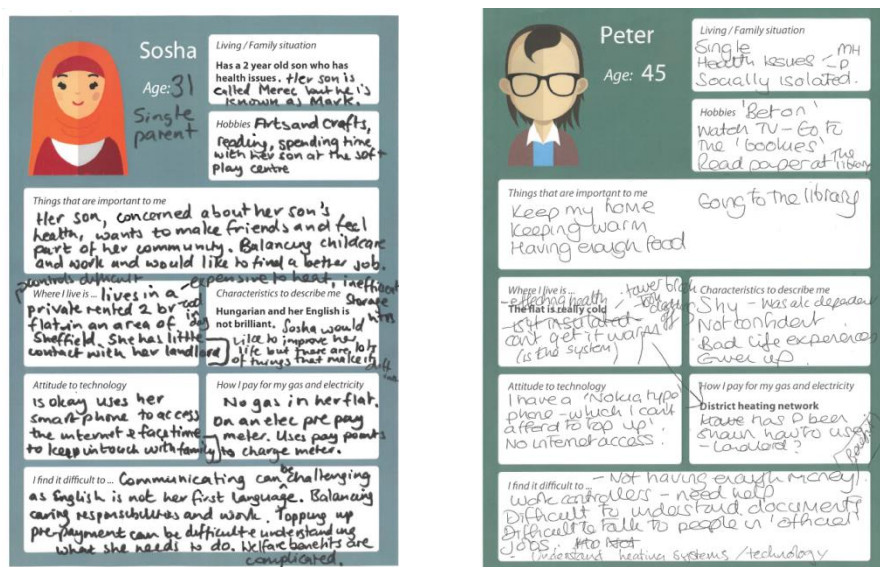 Sosha
Age: 31
Single
parent
Living / Family situation
Has a 2 year old son who has
health issues. Her son is
called Merec but he is
known as Mark.
Hobbies Arts and Crafts,
reading, spending time
with her son at the soft
play centre
Things that are important to me
Her son, concerned about her son's
health, wants to make friends and feel
part of her community. Balancing childcare
and work and would like to find a better job.
controls difficult
expensive to heat, inefficient
storage
Where I live is ... lives in a
private rented 2 bed
flat in an area of
Sheffield. She has little
contact with her landlord
Characteristics to describe me
Hungarian and her English is
not brilliant. Sosha would
like to improve her
life but there are lots
of things that make it
Attitude to technology
is okay uses her
smartphone to access
the internet & facetime
to keep in touch with family
How I pay for my gas and electricity
No gas in her flat.
On an elec pre pay
meter. Uses pay points
to charge meter.
I find it difficult to ... Communicating can be challenging
as English is not her first language. Balancing
caring responsibilities and work. Topping up
pre-payment can be difficult & understanding
what she needs to do. Welfare benefits are
complicated.
Peter
Age: 45
Living / Family situation
Single
Health Issues - MH
- P
Socially isolated.
Hobbies 'Bet on'
Watch TV - Go to
the 'bookies'
Read paper at the library
Things that are important to me
Keep my home
Keeping warm
Having enough food
Going to the library
Where I live is ...
- effecting health
The flat is really cold
- isn't insulated
can't get it warm
(is the system)
tower block
Characteristics to describe me
Shy - was alc dependent
Not confident
Bad life experiences
Given up.
Attitude to technology
I have a 'Nokia type'
phone - which I can't
afford to top up'.
No internet access.
How I pay for my gas and electricity
District heating network
Have has P been
shown how to use
- landlord?
I find it difficult to ... - Not having enough money!
Work controllers - need help
Difficult to understand documents
Difficult to talk to people in 'official'
jobs.
- Understand heating systems / technology